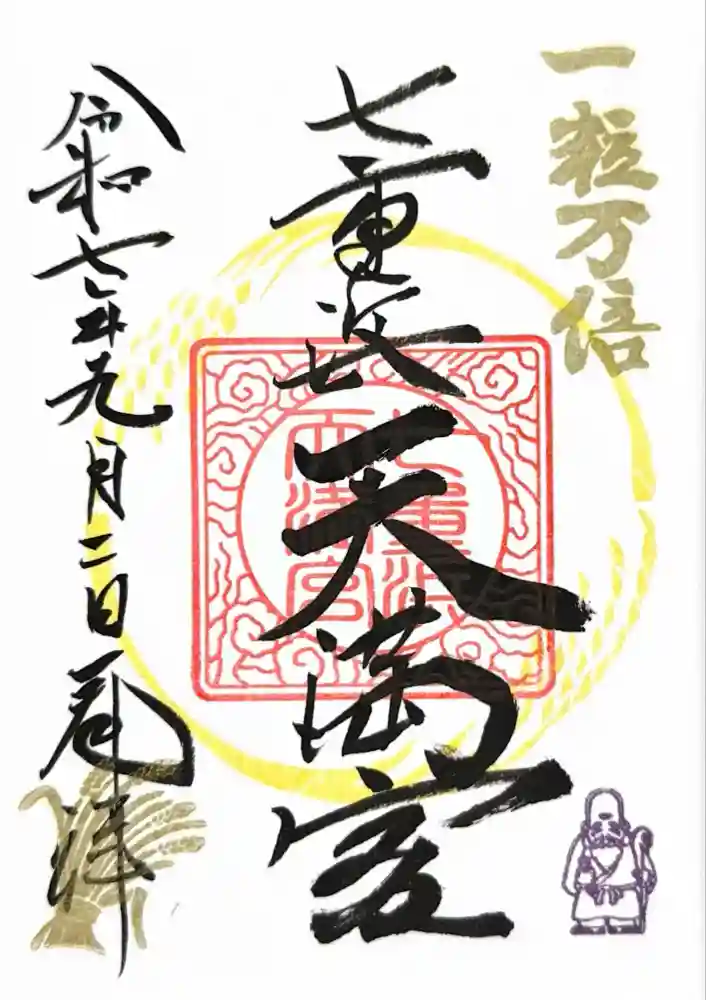 一粒万倍
七重浜天満宮
令和七年九月二日奉拝